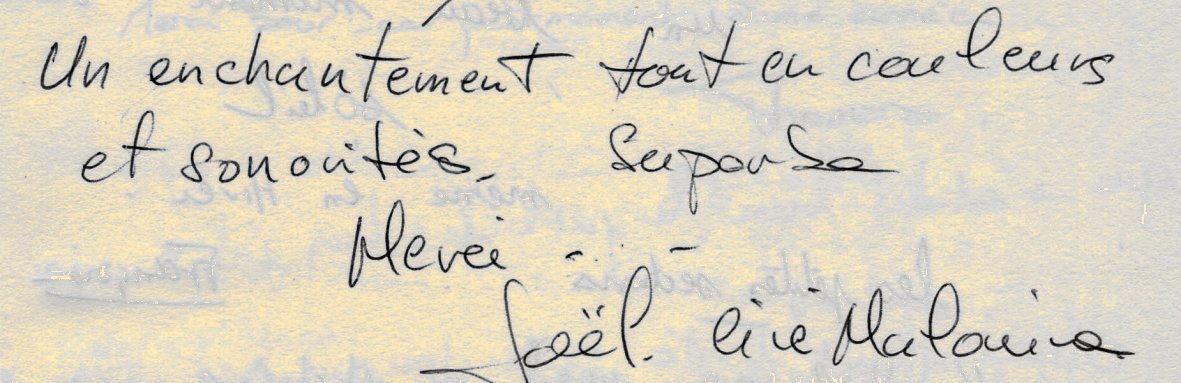 Un enchantement tout en couleurs
et sonorités. Superbe
Merci ...-
Joël.